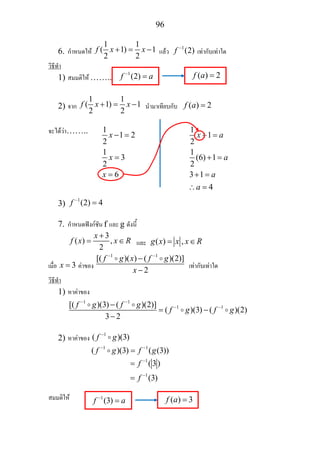 96
6. กำหนดให้ f(1/2 x + 1) = 1/2 x − 1 แล้ว f⁻¹(2) เท่ากับเท่าใด
วิธีทำ
1) สมมติให้ …….. f⁻¹(2) = a f(a) = 2
2) จาก f(1/2 x + 1) = 1/2 x − 1 นำมาเทียบกับ f(a) = 2
จะได้ว่า…….. 1/2 x − 1 = 2 1/2 x − 1 = a
1/2 x = 3 1/2 (6) + 1 = a
x = 6 3 + 1 = a
∴ a = 4
3) f⁻¹(2) = 4
7. กำหนดฟังก์ชัน f และ g ดังนี้
f(x) = (x + 3)/2 , x ∈ R และ g(x) = |x|, x ∈ R
เมื่อ x = 3 ค่าของ [(f⁻¹ ∘ g)(x) − (f⁻¹ ∘ g)(2)]/(x − 2) เท่ากับเท่าใด
วิธีทำ
1) หาค่าของ
[(f⁻¹ ∘ g)(3) − (f⁻¹ ∘ g)(2)]/(3 − 2) = (f⁻¹ ∘ g)(3) − (f⁻¹ ∘ g)(2)
2) หาค่าของ (f⁻¹ ∘ g)(3)
(f⁻¹ ∘ g)(3) = f⁻¹(g(3))
= f⁻¹(|3|)
= f⁻¹(3)
สมมติให้ f⁻¹(3) = a f(a) = 3